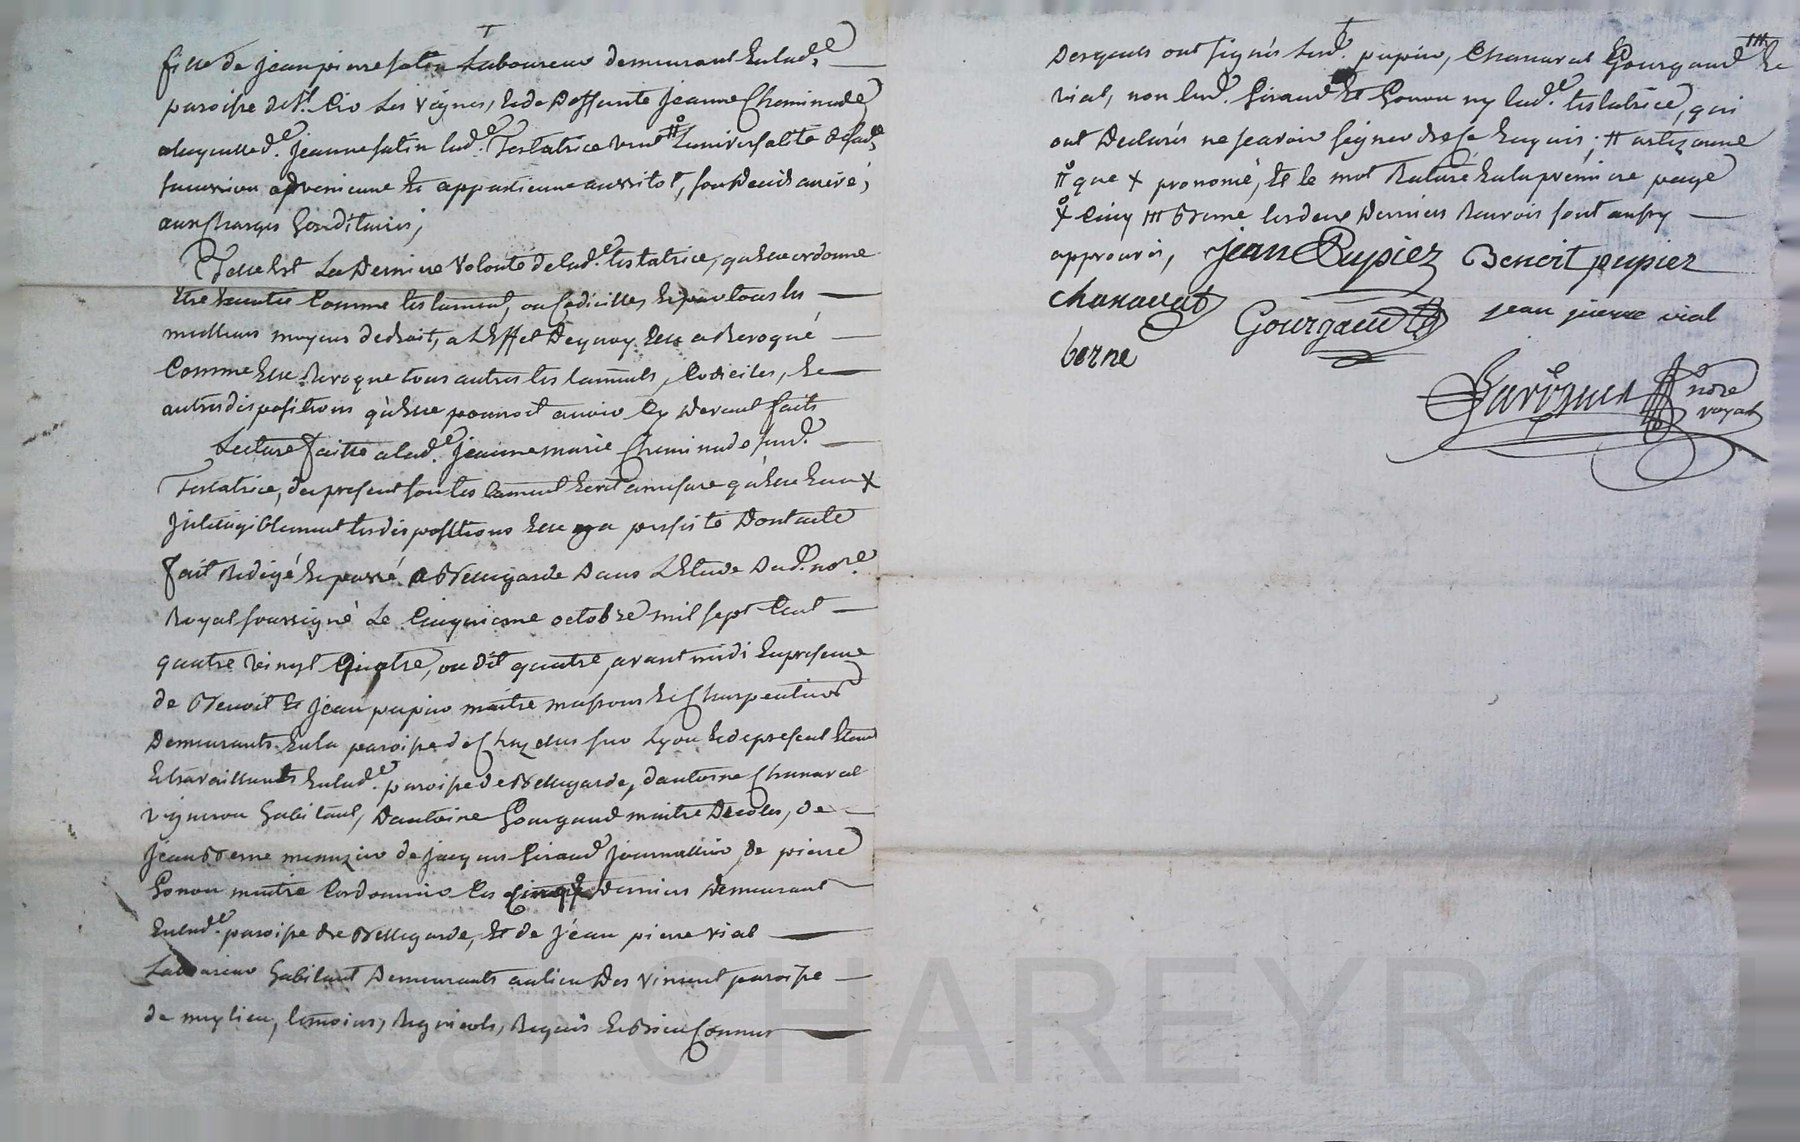 fille de jean pierre satin Laboureur demeurant En lad.e
paroisse de St. Cir Les vignes, Et de Deffunte jeanne Cheminade
alaquelle d.e jeanne satin lad.e Testatrice veut # L'universalité de sad.e
sucession advenienne Et appartienne aussitot, son Deceds arrivé,
aux Charges héréditaires,
Telle Est La Derniere volonté de lad.e testatrice, qu'elle ordonne
Etre Executée Comme testament, ou Codicilles, Et par tous les
meilleurs moyens de droit, a L'Effet De quoy Elle a Revoqué
Comme Elle Revoque tous autres testaments, Codiciles, Et
autres dispositions qu'elle pourroit avoir Cy Devant faits
Lecture faitte a lad.e jeanne marie Cheminade sud.e
Testatrice, du present son testament Ecrit a mesure qu'elle En a +
jnteligiblement les dispositions Elle y a persisté Dont acte
fait Redigé Et passé a Bellegarde Dans L'Etude Dud. no.re
Royal soussigné Le Cinquieme octobre mil sept Cent
quatre vingt Quatre, ou dit quatre, avant midi En presence
de Benoit Et jean pupier maitre massons Et Charpentiers
Demeurants En la paroisse de Chazelles sur Lyon Et de present Etant
Et travaillants En lad.e paroisse de Bellegarde, d'antoine Chanavat
vigneron habitant, D'antoine Gourgaud maitre D'ecoles, de
jean Berne menuzier de jacques Giraud journallier, de pierre
Gonon maitre Cordonnier les Cinq Derniers Demeurant
En lad.e paroisse de Bellegarde, Et de jean pierre vial
Laboureur habitant Demeurants au lieu Des paroisse
de meylieu, temoins, Regnicols, Requis Et Bien Connus
Desquels ont signés led. pupier, Chanavat Gourgaud ### Et
vial, non led. Giraud Et Gonon ny lad.e testatrice, qui
ont Declarés ne sçavoir signer de ce Enquis, # artizanne
# que + prononcé, Et le mot Raturé En la premiere page
+ Cinq ### Berne les deux Derniers Renvois sont aussy
approuvés, jean Pupiez Benoit pupiez
chanavat Gourgaud jean pierre vial
berne
no.re
royal